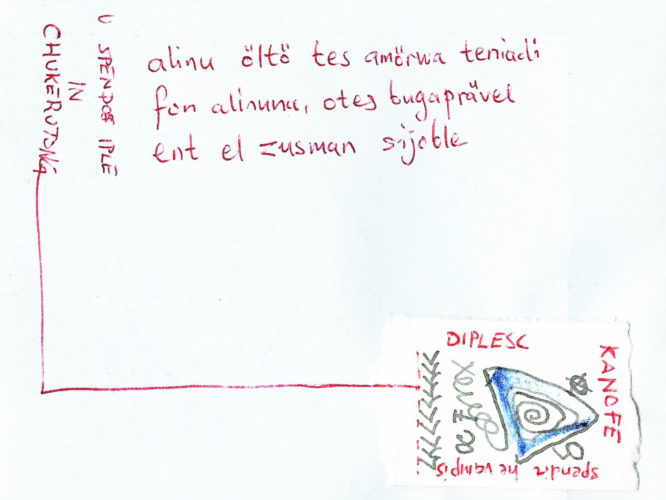 U SPENDOS IPLE
IN
CHUKERUTONG
alinu öltö tes amörwa teniadi
fon alinunu, otes bugaprävel
ent el zusman sijotle
DIPLESC
KANOFE
spendir he vampis